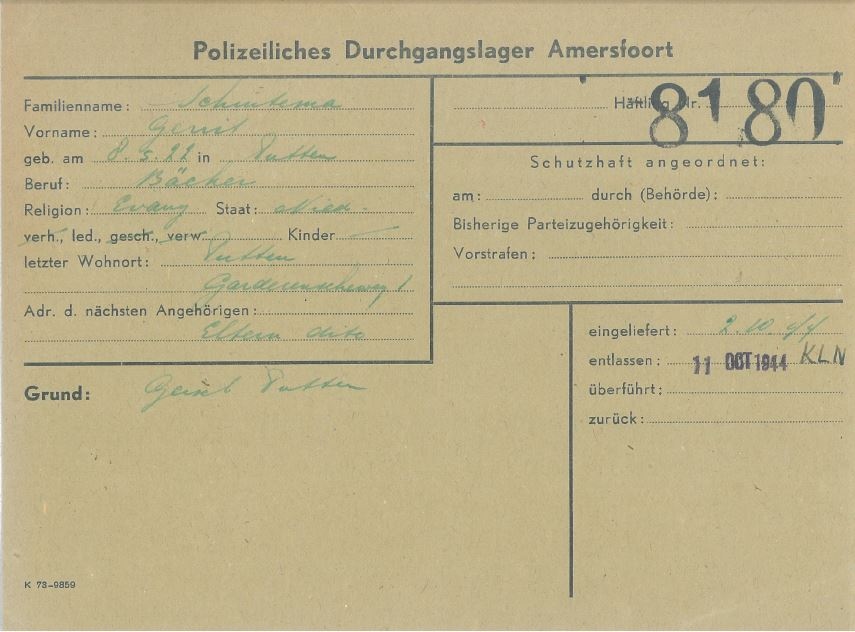 Polizeiliches Durchgangslager Amersfoort
Familienname: Schuitema
Vorname: Gerrit
geb. am 8 5. 22 in Putten
Beruf: Bäcker
Religion: Evang Staat: Nied.
verh., led., gesch., verw. Kinder
letzter Wohnort: Putten
1
Adr. d. nächsten Angehörigen:
Eltern dito
Häftling Nr. 8180
Schutzhaft angeordnet:
am: durch (Behörde):
Bisherige Parteizugehörigkeit:
Vorstrafen:
eingeliefert: 2. 10. 44
entlassen: 11 OCT 1944 KLN
überführt:
zurück:
Grund: Geisel Putten
K 73-9859